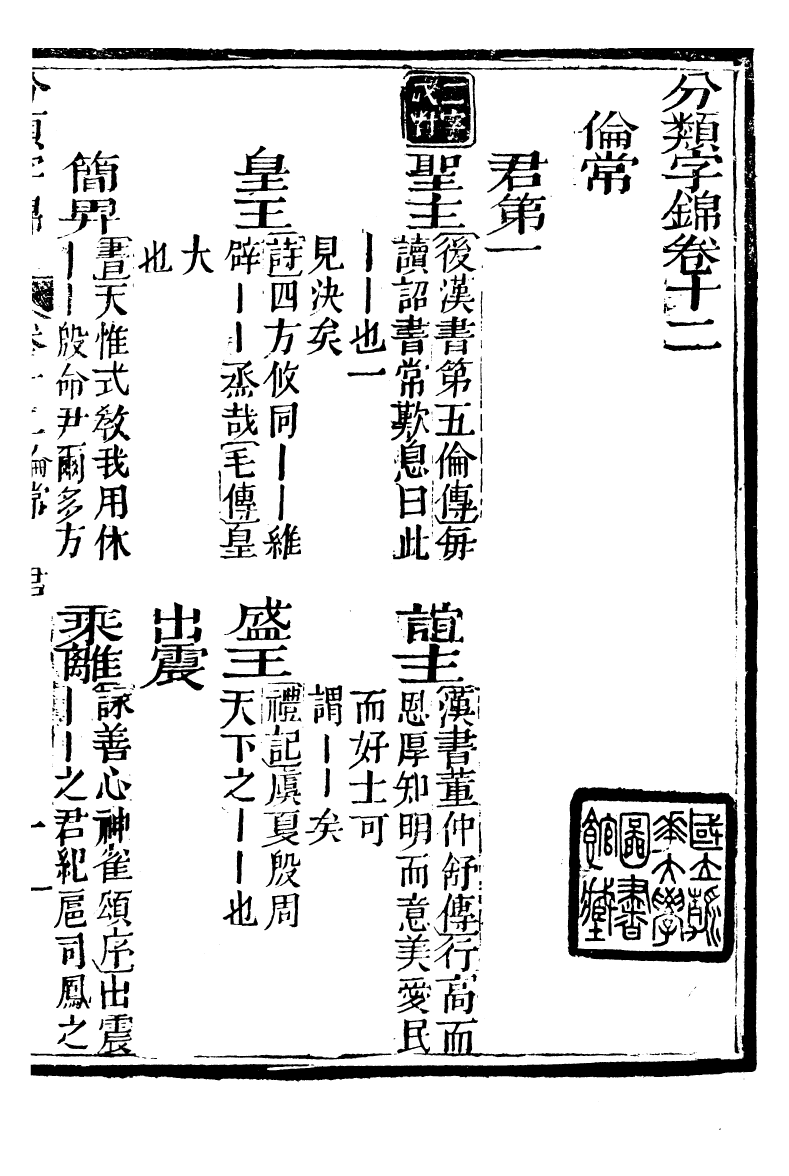 分類字錦卷十二
倫常
君第一
聖主
後漢書第五倫傳每
讀詔書常歎息曰此
丨丨也一
見決矣
誼主
漢書董仲舒傳行高而
恩厚知明而意美愛民
而好士可
謂丨丨矣
皇王
詩四方攸同丨丨維
辟丨丨烝哉毛傳皇
大
也
盛王
禮記虞夏殷周
天下之丨丨也
簡畀
書天惟式敎我用休
丨丨殷命尹爾多方
出震
乘離
詠善心神雀頌序出震
丨丨之君紀扈司鳳之
分類字錦 卷十二倫常 君 一
國立清華大學圖書館藏